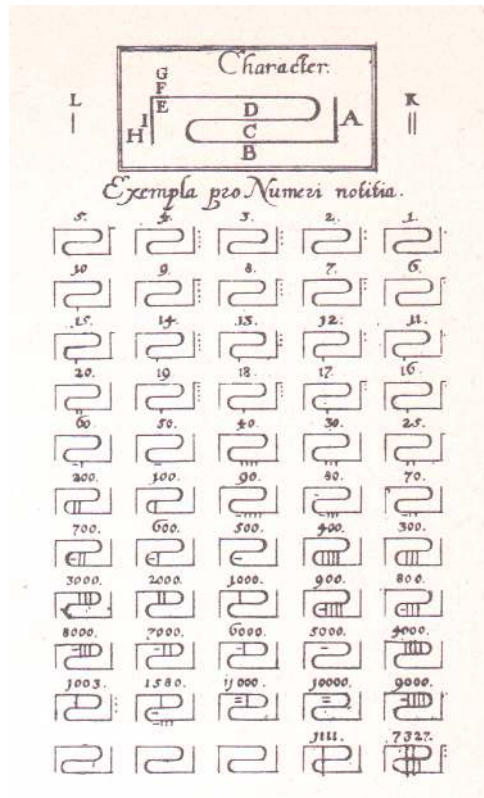 Character.
G
F
L E D K
I C A
H B
Exempla pro Numeri notitia.
5. 4. 3. 2. 1.
10 9. 8. 7. 6.
15. 14. 13. 12. 11.
20. 19 18. 17. 16.
60 50. 40. 30. 25.
200. 100. 90. 80. 70.
700. 600. 500. 400. 300.
3000. 2000. 1000. 900. 800.
8000. 7000. 6000. 5000. 4000.
1003. 1580. 11000. 10000. 9000.
1111. 7327.